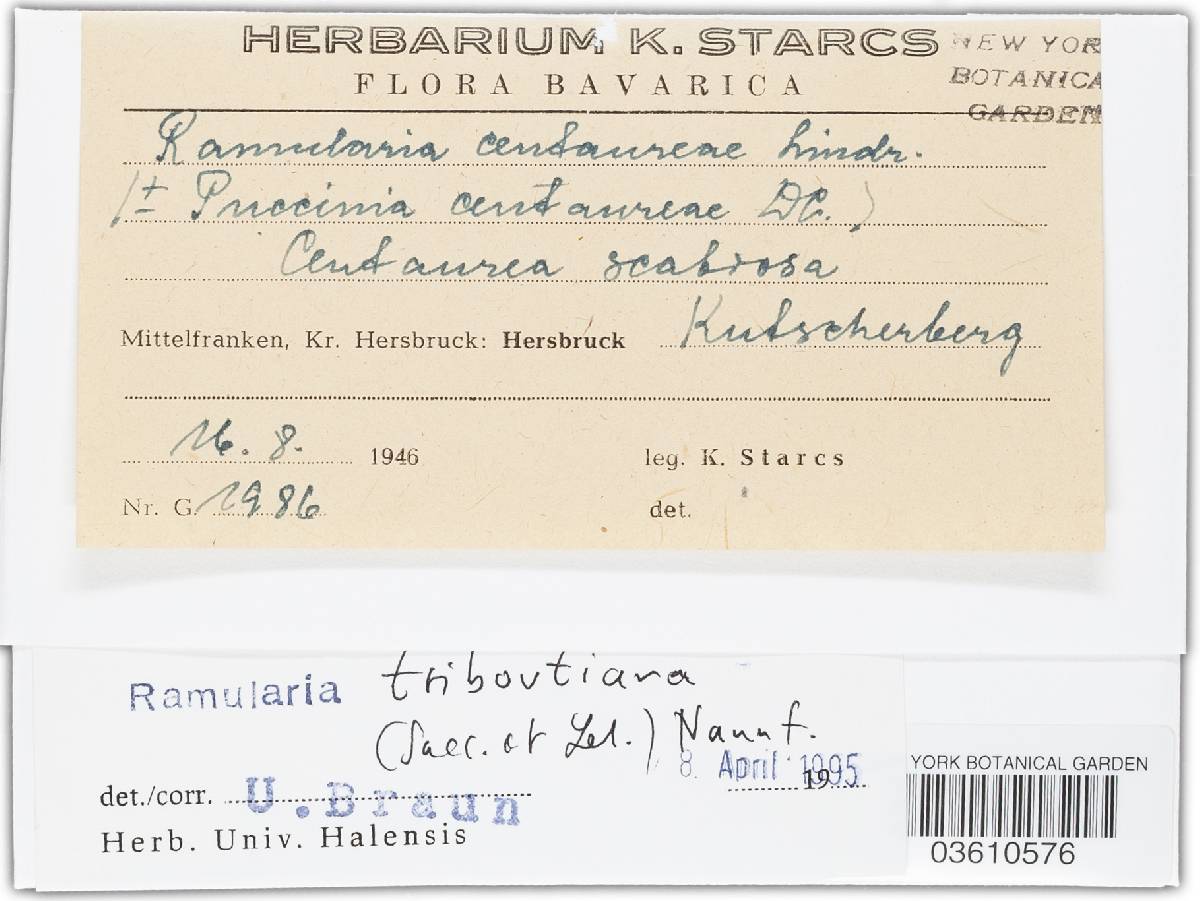 HERBARIUM K. STARCS
NEW YORK
BOTANICA
GARDEN
FLORA BAVARICA
Ramularia centaureae Lindr.
(± Puccinia centaureae DC.)
Centaurea scabiosa
Mittelfranken, Kr. Hersbruck: Hersbruck Kutscherberg
16. 8. 1946
leg. K. Starcs
Nr. G. 1986
det.
Ramularia triboutiana
(Sacc. et Let.) Nannf.
8. April 1995
det./corr. U. Braun
Herb. Univ. Halensis
YORK BOTANICAL GARDEN
03610576